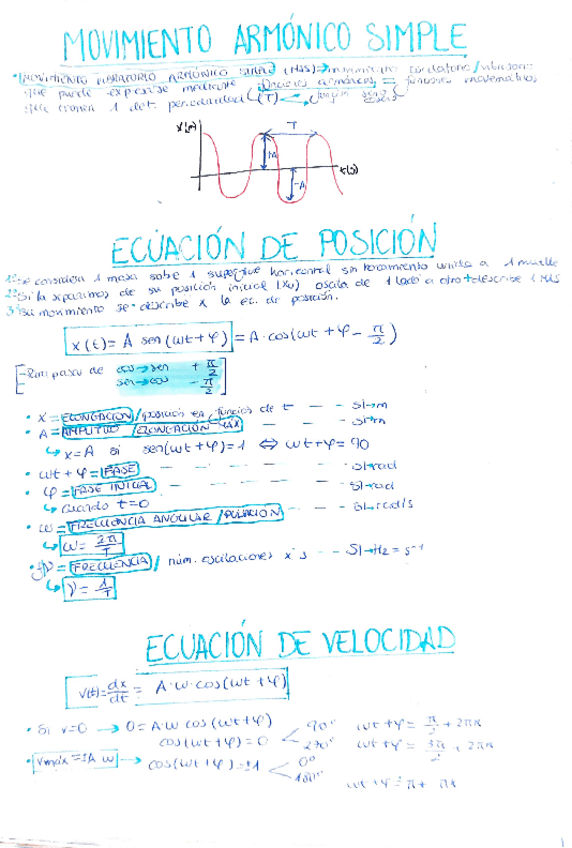 MOVIMIENTO ARMÓNICO SIMPLE
• MOVIMIENTO VIBRATORIO ARMÓNICO SIMPLE (MAS) → movimiento oscilatorio / vibratorio
que puede expresarse mediante funciones armónicas = funciones matemáticas
que tienen 1 det. periodicidad (T) función
x(m) T t(s)
A -A
ECUACIÓN DE POSICIÓN
1º Se considera 1 masa sobre 1 superficie horizontal sin rozamiento unida a 1 muelle
2º Si la separamos de su posición inicial (x₀) oscila de 1 lado a otro + describe 1 MAS
3º Su movimiento se describe x la ec. de posición.
x(t) = A sen(ωt + φ) = A·cos(ωt + φ - π/2)
Para pasar de cos → sen + π/2
sen → cos - π/2
• X = ELONGACIÓN / posición en función de t - - SI → m
• A = AMPLITUD / ELONGACIÓN MÁX - - SI → m
↳ x = A si sen(ωt + φ) = 1 ⇔ ωt + φ = 90
• ωt + φ = FASE - - - SI → rad
• φ = FASE INICIAL - - - SI → rad
↳ Cuando t = 0
• ω = FRECUENCIA ANGULAR / PULSACIÓN - - SI → rad/s
↳ ω = 2π/T
• ν = FRECUENCIA / núm. oscilaciones x s - - SI → Hz = s⁻¹
↳ ν = 1/T
ECUACIÓN DE VELOCIDAD
v(t) = dx/dt = A·ω·cos(ωt + φ)
• Si v = 0 → 0 = A·ω cos(ωt + φ) 90º ωt + φ = π/2 + 2πn
cos(ωt + φ) = 0 270º ωt + φ = 3π/2 + 2πn
• vmáx = ±A ω → cos(ωt + φ) = ±1 0º
180º
ωt + φ = π + πn